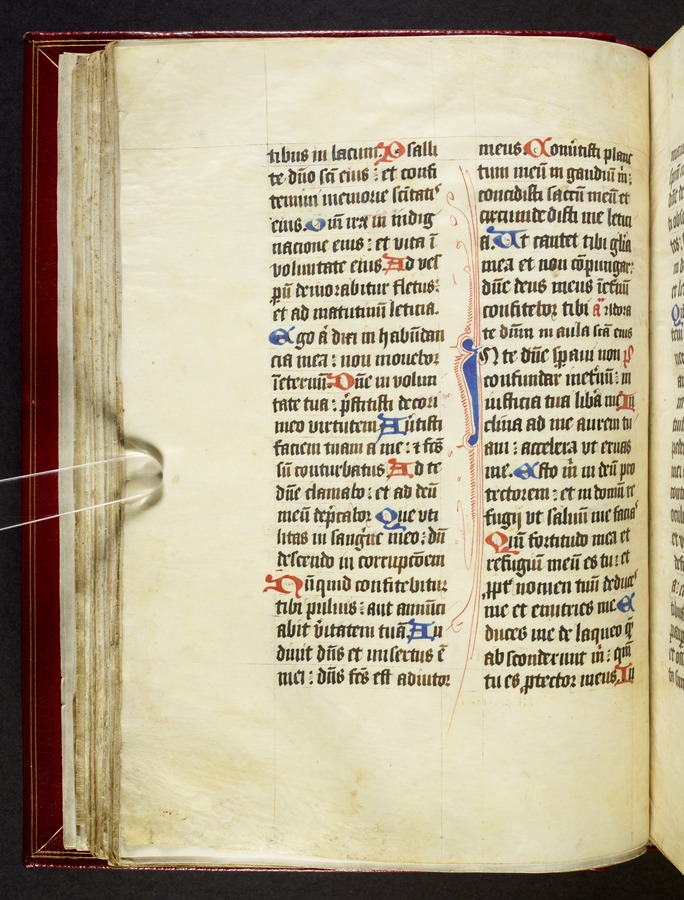 tibus in lacum. Psalli
te dño sči eius : et confi
temini memorie sčitatis
eius. Qm̄ ira in indig
nacione eius : et vita ī
voluntate eius. Ad ves
ꝑū demorabitur fletus :
et ad matutinū leticia.
Ego ā dixi in habūdan
cia mea : non mouebor
īeternū. Dn̄e in volun
tate tua : p̄stitisti decori
meo virtutem. Au̇tisti
faciem tuam a me : ⁊ fc̄s
sū conturbatus. Ad te
dn̄e clamabo : et ad deū
meū dep̄cabor. Que vti
litas in sangˀne meo : dū
descendo in corrupcōem
Nūquid confitebitur
tibi puluis : aut annūci
abit vˀitatem tuā. Au
diuit dn̄s et misertus ē
mei : dn̄s fc̄s est adiutor
meus. Conuˀtisti planc
tum meū in gaudiū m̄ :
concidisti saccū meū et
circumdedisti me letici
a. Ut cantet tibi gl̄ia
mea et non cōpungar :
dn̄e deus meus īet̄nū
confitebor tibi a᷑ Adora
te dn̄m in aula scā eius
IN te dn̄e sp̄aui non p̄s
confundar inet̄nū : in
iusticia tua libˀa me. In
clina ad me aurem tu
am : accelera vt eruas
me. Esto m̄ in deū pro
tectorem : et in domū re
fugij vt saluū me facias
Qm̄ fortitudo mea et
refugiū meū es tu : et
ꝓpt̄ nomen tuū deduces
me et enutries me. E
duces me de laqueo q̄
absconderunt m̄ : qm̄
tu es ꝓtector meus. In